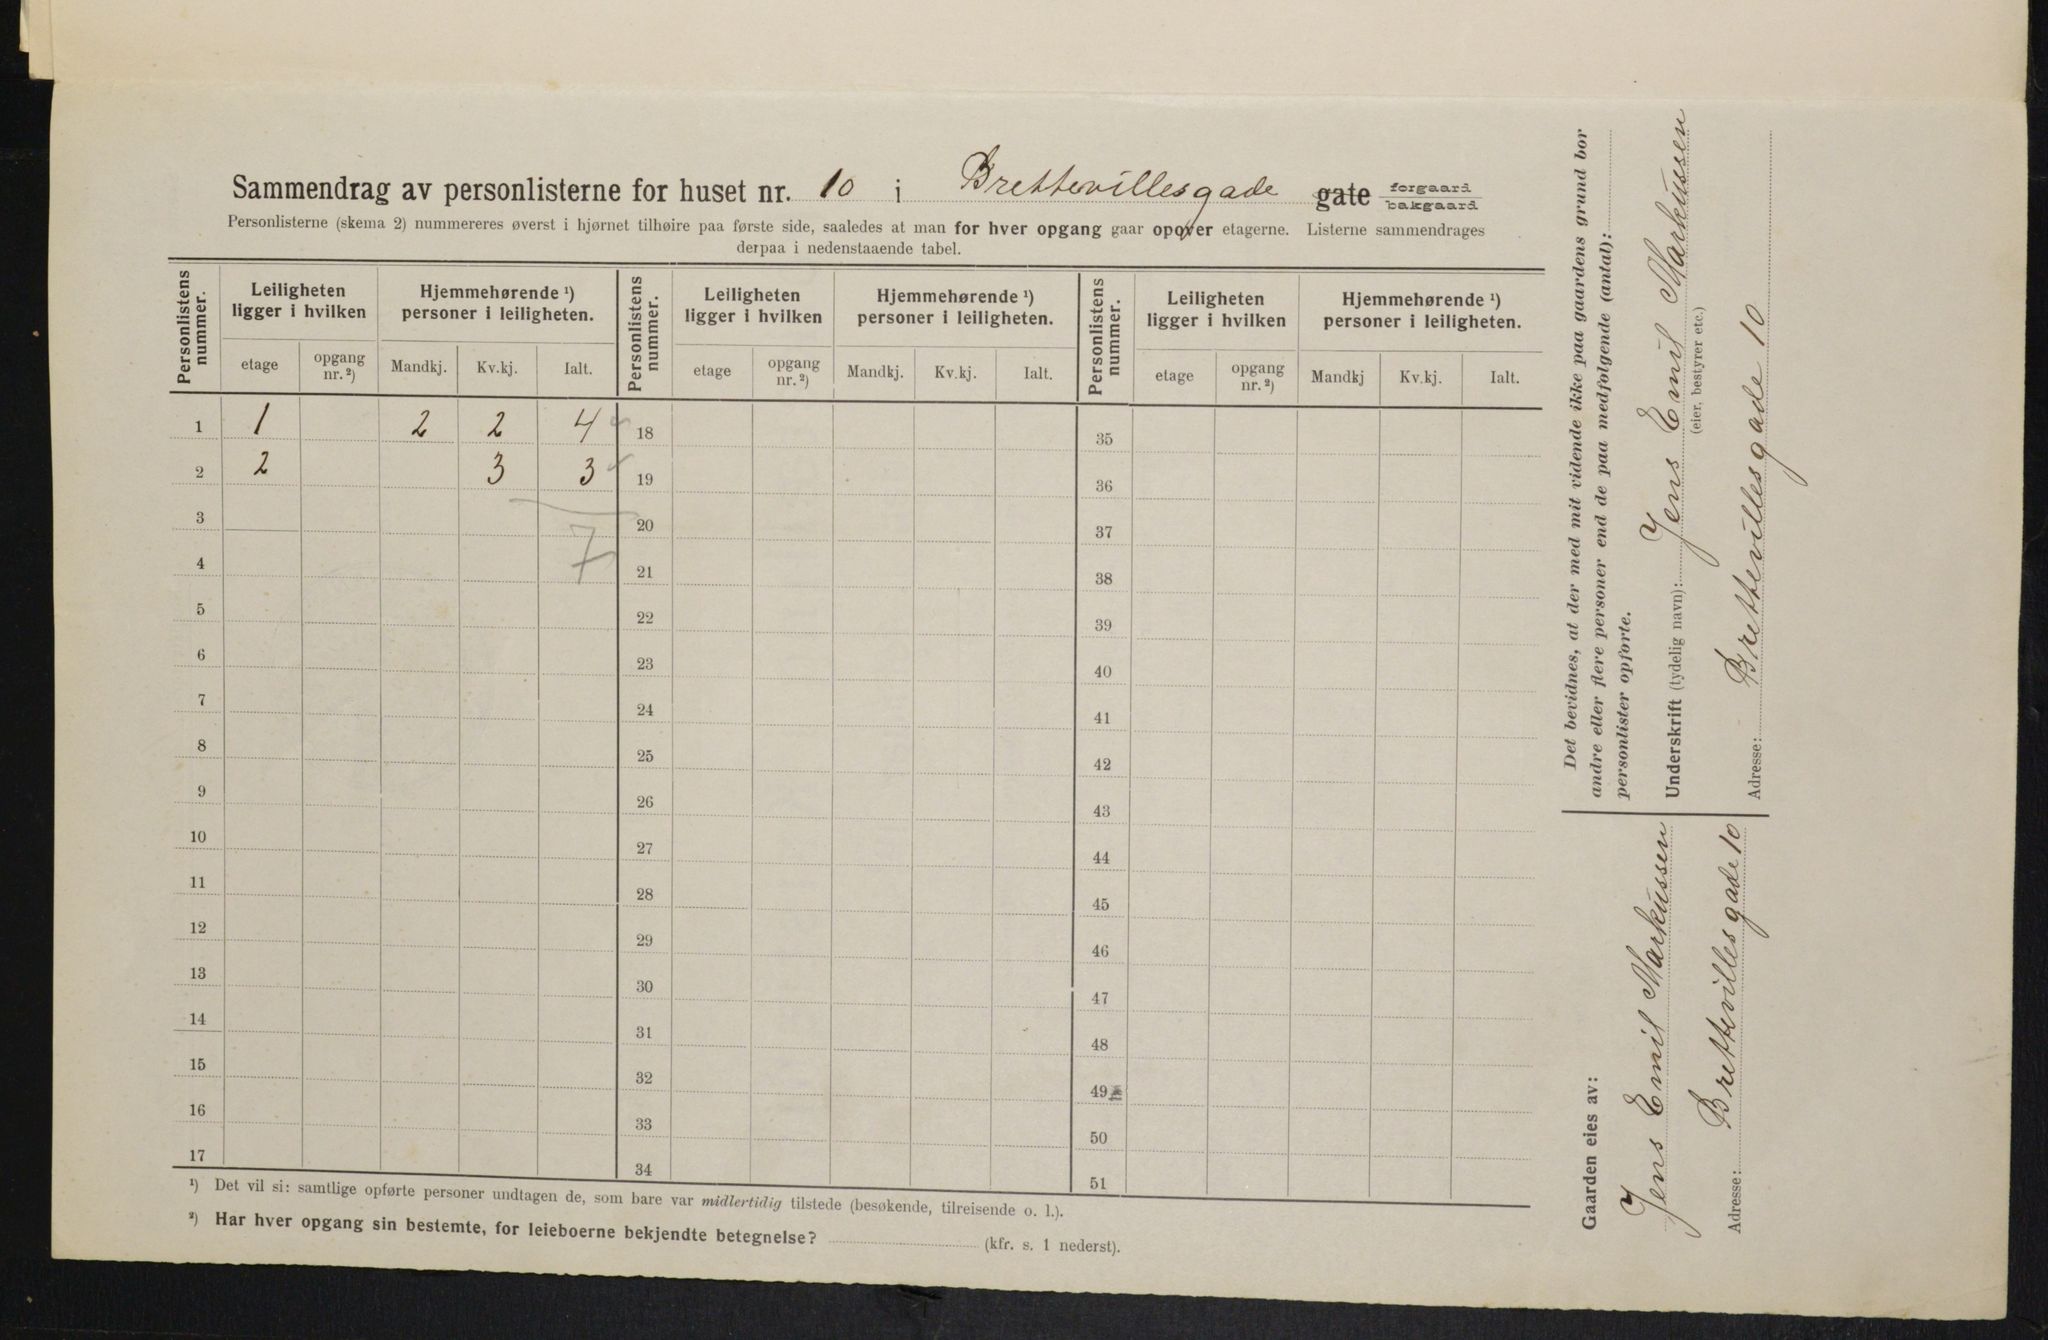 Sammendrag av personlisterne for huset nr. 10 i Brettevillesgade gate forgaard bakgaard
Personlisterne (skema 2) nummereres øverst i hjørnet tilhøire paa første side, saaledes at man for hver opgang gaar opover etagerne. Listerne sammendrages
derpaa i nedenstaaende tabel.
Personlistens nummer. Leiligheten ligger i hvilken Hjemmehørende ¹) personer i leiligheten. Personlistens nummer. Leiligheten ligger i hvilken Hjemmehørende ¹) personer i leiligheten. Personlistens nummer. Leiligheten ligger i hvilken Hjemmehørende ¹) personer i leiligheten.
etage opgang nr. ²) Mandkj. Kv.kj. Ialt. etage opgang nr. ²) Mandkj. Kv.kj. Ialt. etage opgang nr. ²) Mandkj Kv.kj. Ialt.
1 1 2 2 4 18 35
2 2 3 3 19 36
3 20 37
7
4 21 38
5 22 39
6 23 40
7 24 41
8 25 42
9 26 43
10 27 44
11 28 45
12 29 46
13 30 47
14 31 48
15 32 49
16 33 50
17 34 51
¹) Det vil si: samtlige opførte personer undtagen de, som bare var midlertidig tilstede (besøkende, tilreisende o. l.).
²) Har hver opgang sin bestemte, for leieboerne bekjendte betegnelse? (kfr. s. 1 nederst).
Det bevidnes, at der med mit vidende ikke paa gaardens grund bor
andre eller flere personer end de paa medfølgende (antal):
personlister opførte.
Underskrift (tydelig navn): Jens Emil Markussen
(eier, bestyrer etc.)
Adresse: Brettevillesgade 10
Gaarden eies av:
Jens Emil Markussen
Adresse: Brettevillesgade 10